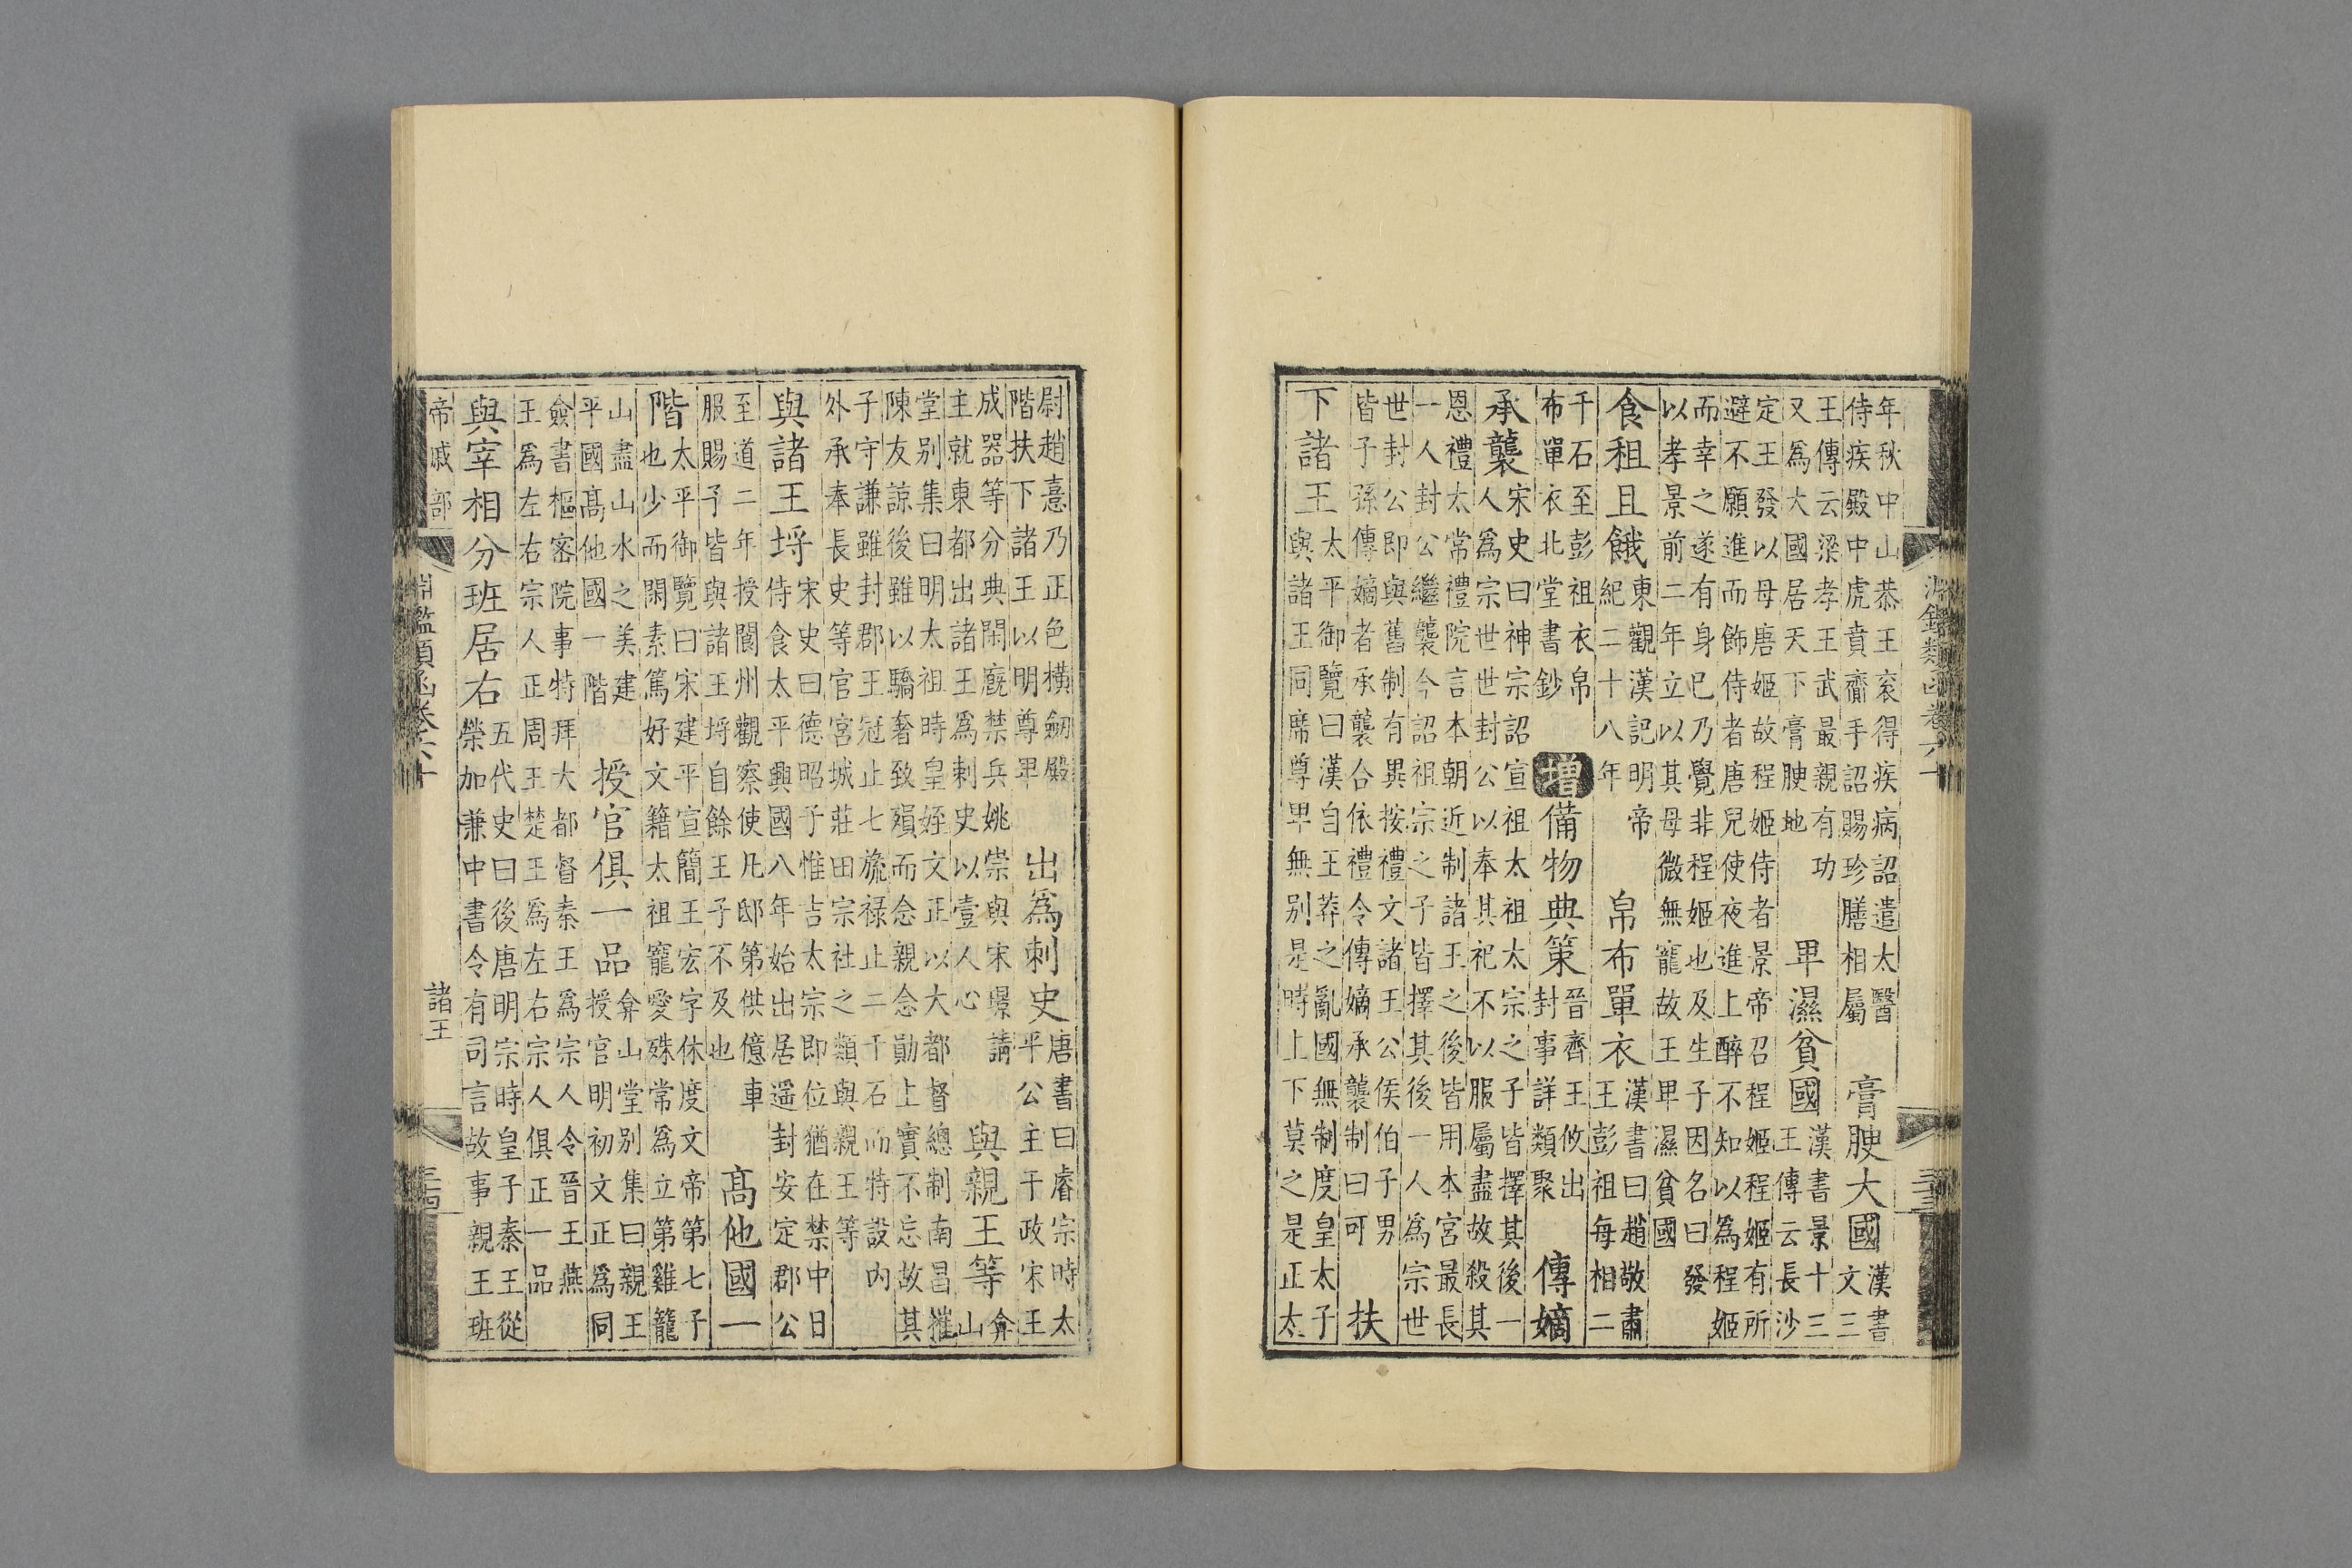 淵鑑類函卷六十
三十三
年秋中山恭王袞得疾病詔遣太醫
侍疾殿中虎賁齎手詔賜珍膳相屬
膏腴大國
漢書
文三
王傳云梁孝王武最親有功
又爲大國居天下膏腴地
卑濕貧國
漢書景十三
王傳云長沙
定王發以母唐姬故程姬侍者景帝召程姬程姬有所
避不願進而飾侍者唐兒使夜進上醉不知以爲程姬
而幸之遂有身已乃覺非程姬也及生子因名曰發
以孝景前二年立以其母微無寵故王卑濕貧國
食租且餓
東觀漢記明帝
紀二十八年
帛布單衣
漢書曰趙敬肅
王彭祖每相二
千石至彭祖衣帛
布單衣北堂書鈔
增
備物典策
晉齊王攸出
封事詳類聚
傳嫡
承襲
宋史曰神宗詔宣祖太祖太宗之子皆擇其後一
人爲宗世世封公以奉其祀不以服屬盡故殺其
恩禮太常禮院言本朝近制諸王之後皆用本宮最長
一人封公繼襲今詔祖宗之子皆擇其後一人爲宗世
世封公即與舊制有異按禮文諸王公侯伯子男
皆子孫傳嫡者承襲合依禮令傳嫡承襲制曰可
扶
下諸王
太平御覽曰漢自王莽之亂國無制度皇太子
與諸王同席尊卑無別是時上下莫之是正太
尉趙憙乃正色橫劒殿
階扶下諸王以明尊卑
出爲刺史
唐書曰睿宗時太
平公主干政宋王
成器等分典閑廐禁兵姚崇與宋璟請
主就東都出諸王爲刺史以壹人心
與親王等
弇
山
堂別集曰明太祖時皇姪文正以大都督總制南昌摧
陳友諒後雖以驕奢致殞而念親念勛上實不忘故其
子守謙雖封郡王冠止七旒祿止二千石而特設內
外承奉長史等官宮城莊田宗社之類與親王等
與諸王埒
宋史曰德昭子惟吉太宗即位猶在禁中日
侍食太平興國八年始出居遥封安定郡公
至道二年授閬州觀察使凡邸第供億車
服賜予皆與諸王埒自餘王子不及也
高他國一
階
太平御覽曰宋建平宣簡王宏字休度文帝第七子
也少而閑素篤好文籍太祖寵愛殊常爲立第雞籠
山盡山水之美建
平國高他國一階
授官俱一品
弇山堂別集曰親王
授官明初文正爲同
僉書樞密院事特拜大都督秦王爲宗人令晉王燕
王爲左右宗人正周王楚王爲左右宗人俱正一品
與宰相分班居右
五代史曰後唐明宗時皇子秦王從
榮加兼中書令有司言故事親王班
帝戚部
淵鑑類函卷六十
諸王
三十四